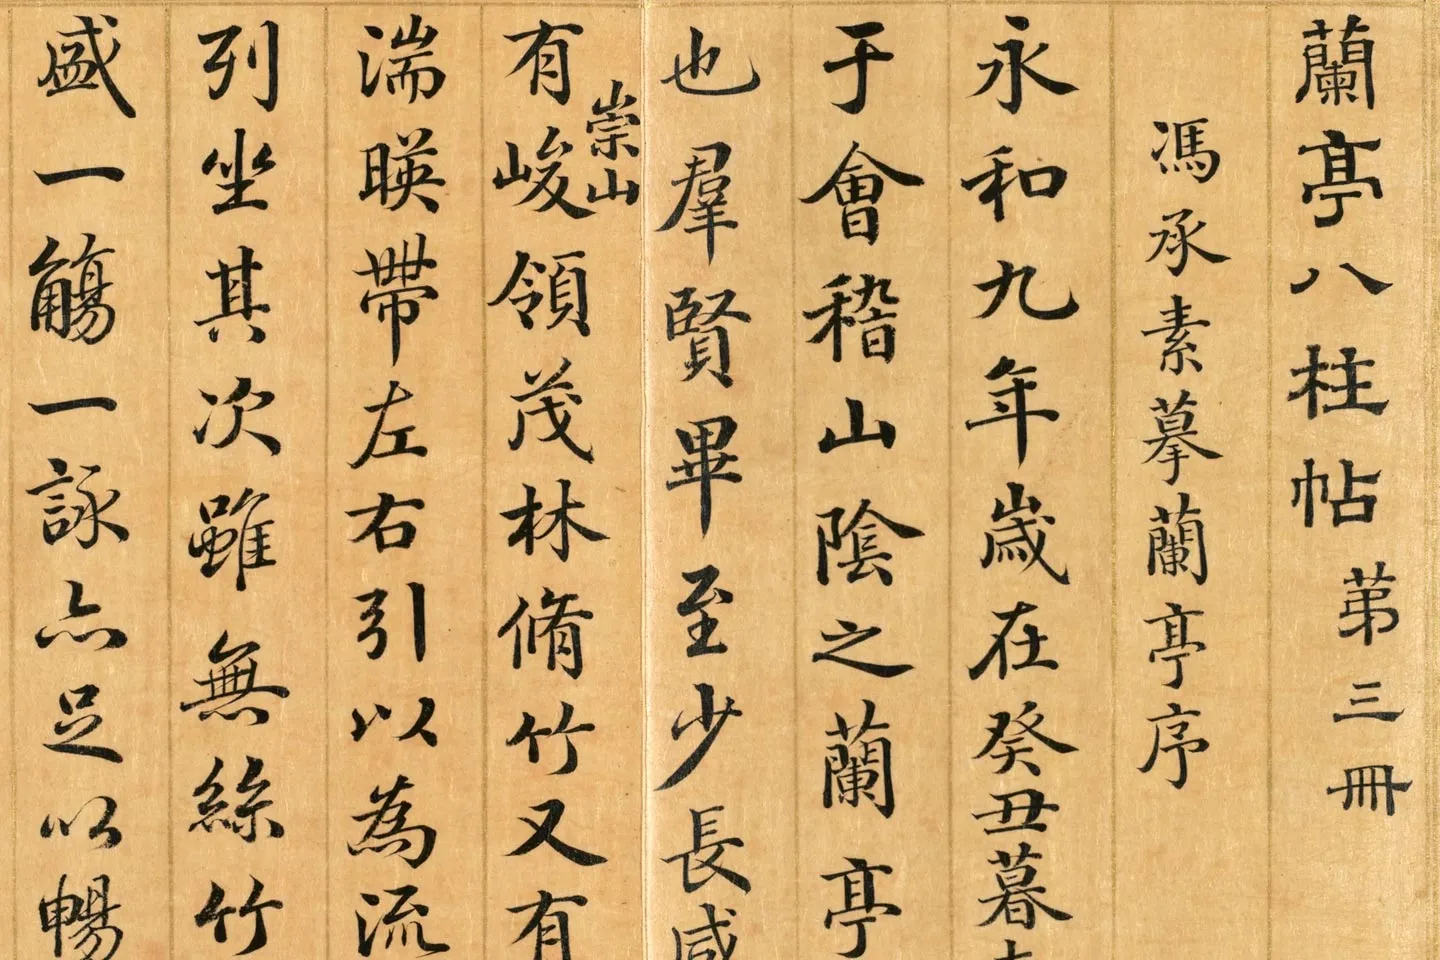 蘭亭八柱帖第三冊
馮承素摹蘭亭序
永和九年歲在癸丑暮
于會稽山陰之蘭亭
也羣賢畢至少長咸
崇山
有峻領茂林脩竹又有
湍暎帶左右引以為流
列坐其次雖無絲竹
盛一觴一詠亦足以暢